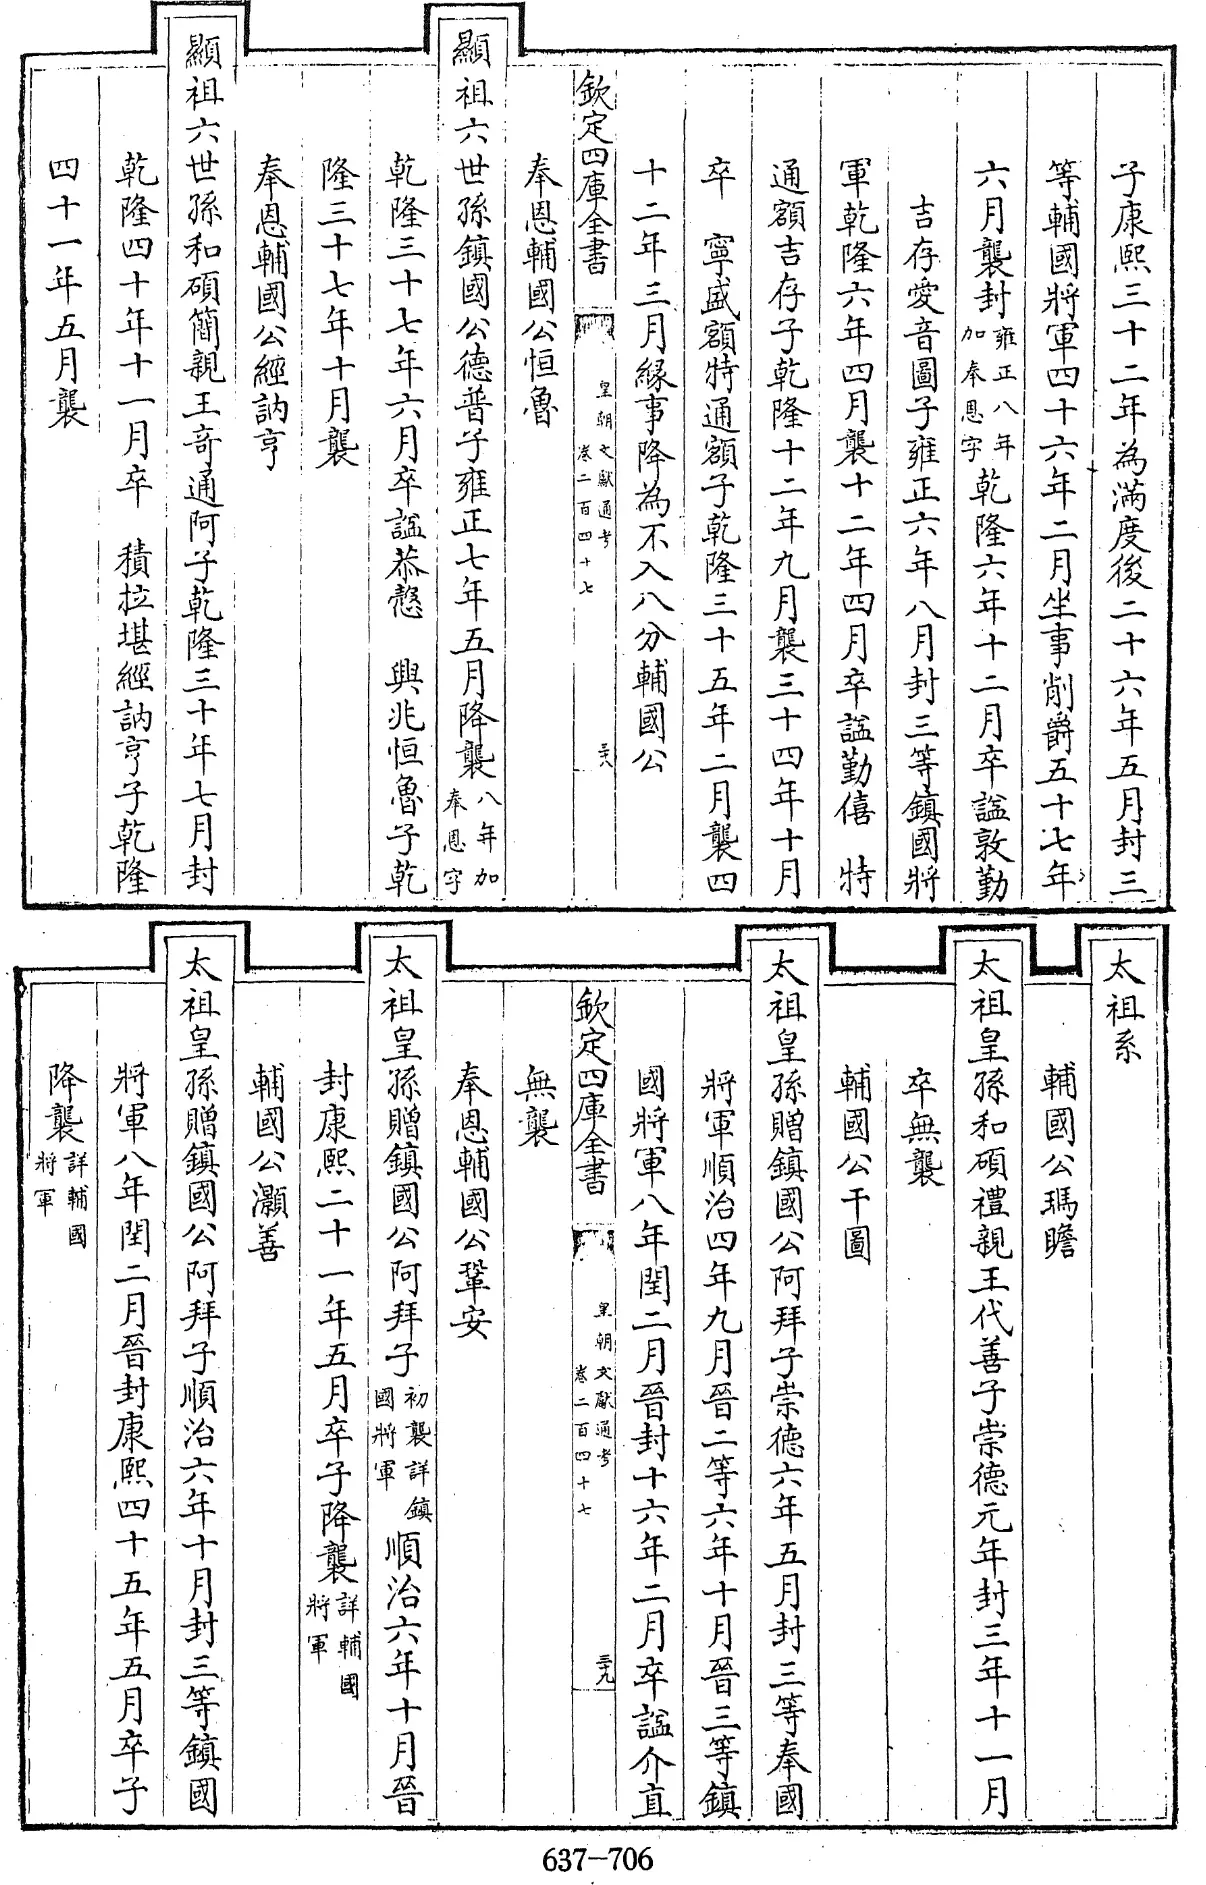 子康熙三十二年為滿度後二十六年五月封三
等輔國將軍四十六年二月坐事削爵五十七年
六月襲封雍正八年加奉恩字乾隆六年十二月卒諡敦勤
吉存愛音圖子雍正六年八月封三等鎮國將
軍乾隆六年四月襲十二年四月卒諡勤僖 特
通額吉存子乾隆十二年九月襲三十四年十月
卒 寧盛額特通額子乾隆三十五年二月襲四
十二年三月緣事降為不入八分輔國公
欽定四庫全書 皇朝文獻通考 卷二百四十七 三十八
奉恩輔國公恒魯
顯祖六世孫鎮國公德普子雍正七年五月降襲八年加奉恩字
乾隆三十七年六月卒諡恭慤 興兆恒魯子乾
隆三十七年十月襲
奉恩輔國公經訥亨
顯祖六世孫和碩簡親王奇通阿子乾隆三十年七月封
乾隆四十年十一月卒 積拉堪經訥亨子乾隆
四十一年五月襲
太祖系
輔國公瑪瞻
太祖皇孫和碩禮親王代善子崇德元年封三年十一月
卒無襲
輔國公干圖
太祖皇孫贈鎮國公阿拜子崇德六年五月封三等奉國
將軍順治四年九月晉二等六年十月晉三等鎮
國將軍八年閏二月晉封十六年二月卒諡介直
欽定四庫全書 皇朝文獻通考 卷二百四十七 三十九
無襲
奉恩輔國公鞏安
太祖皇孫贈鎮國公阿拜子初襲詳鎮國將軍順治六年十月晉
封康熙二十一年五月卒子降襲詳輔國將軍
輔國公灝善
太祖皇孫贈鎮國公阿拜子順治六年十月封三等鎮國
將軍八年閏二月晉封康熙四十五年五月卒子
降襲詳輔國將軍
637-706